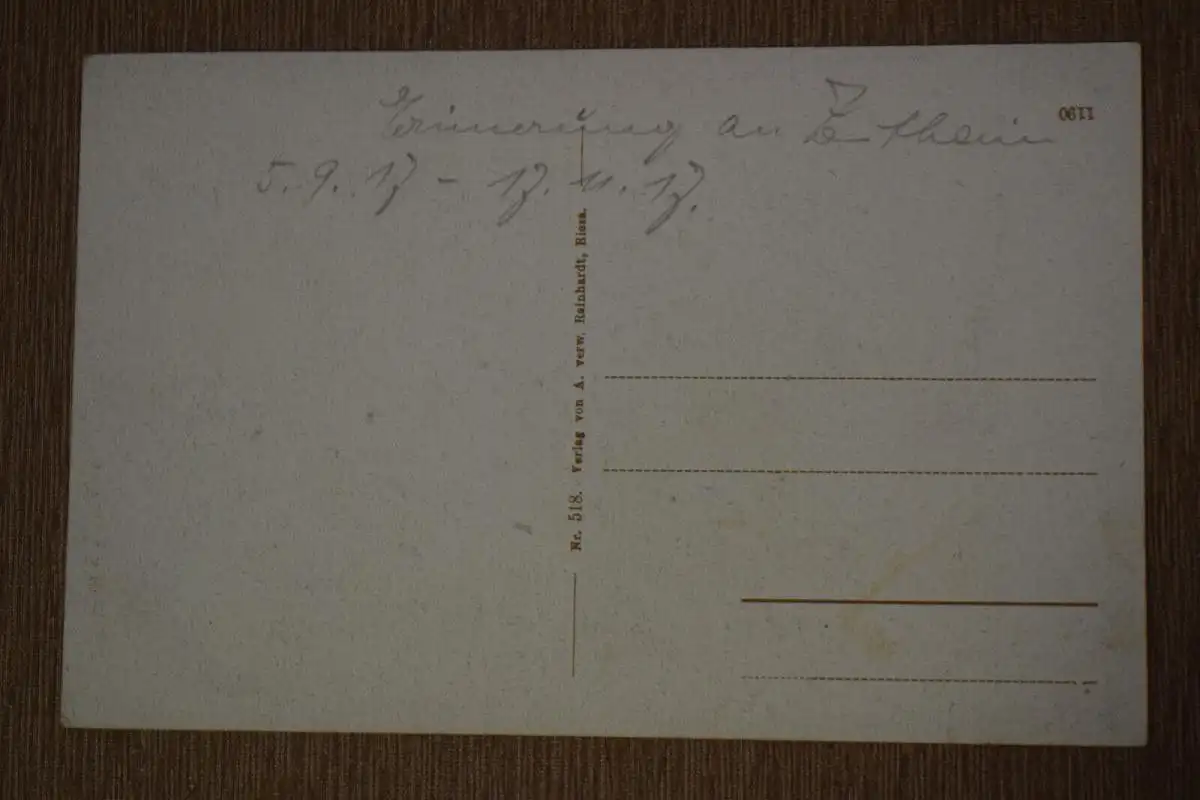 Erinnerung an Zeithain
5.9.17 - 17.11.17.
1190
Nr. 518. Verlag von A. verw. Reinhardt, Riesa.